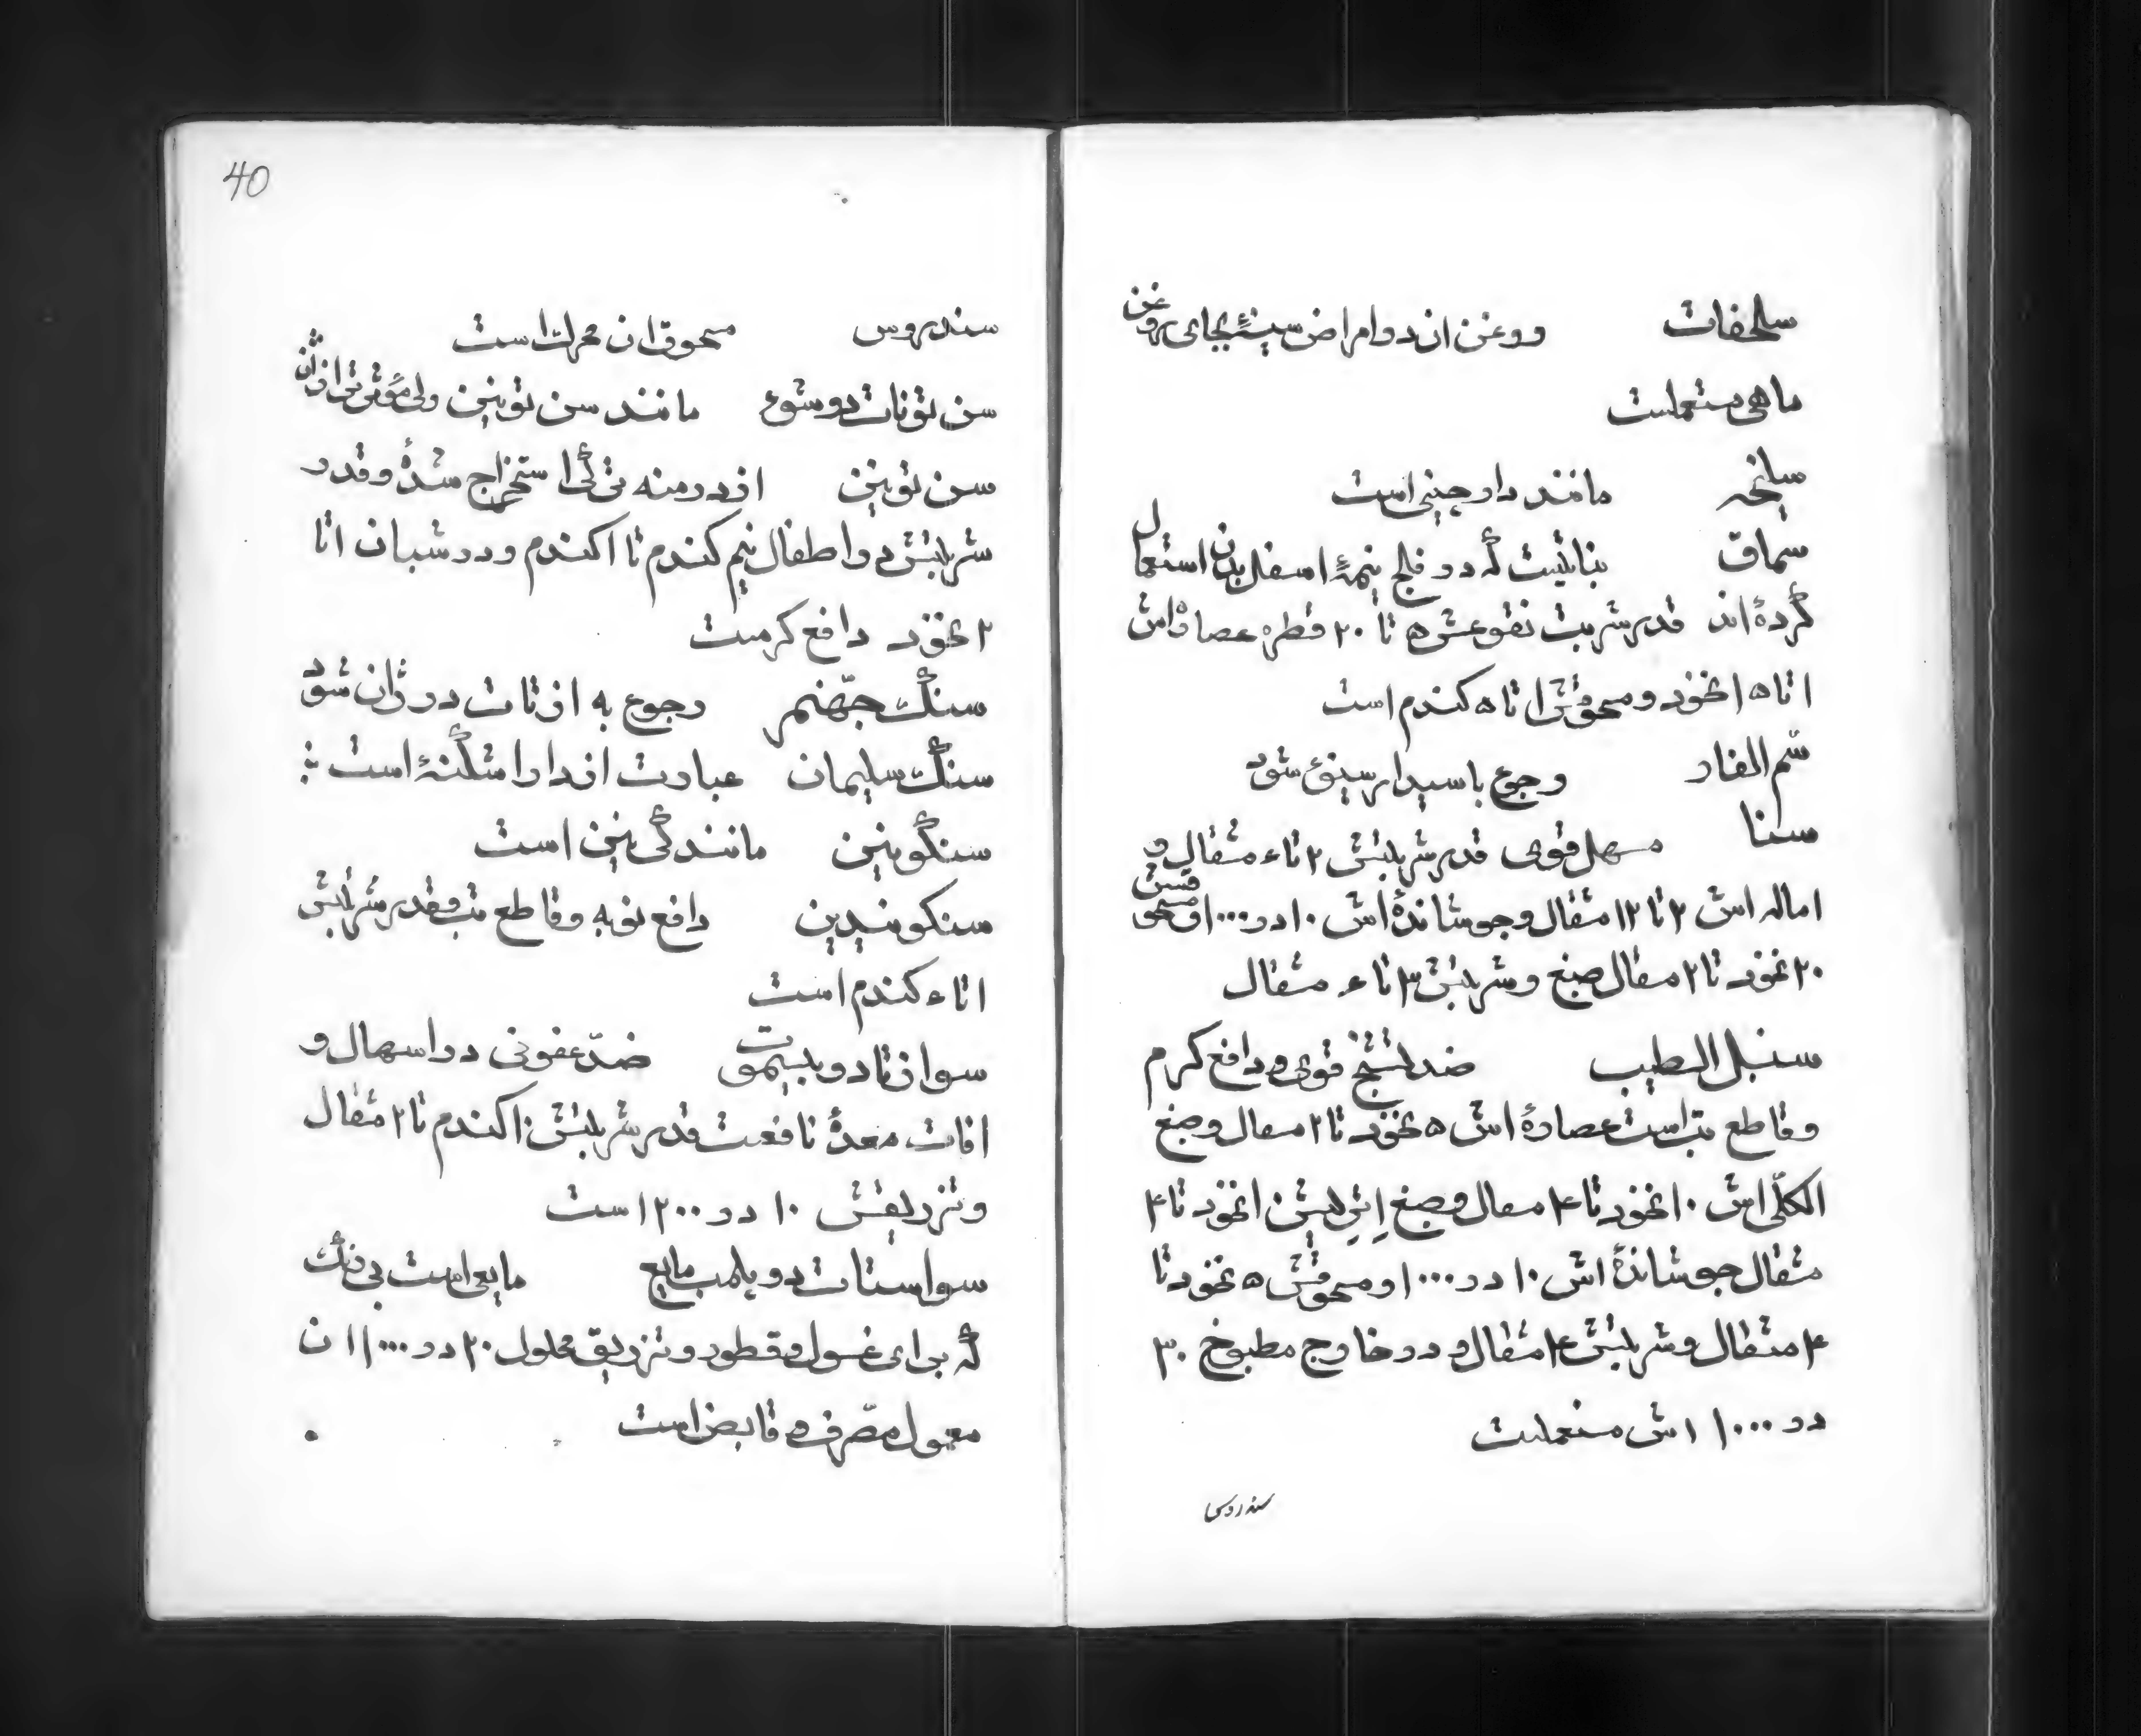 سلحفات روغن ان در امراض سینهٔ بجای روغن
ماهی مستعملست
سلیخه مانند دارچینی است
سماق نباتیست که در فلج نیمهٔ اسفل بدن استعمال
کرده‌اند قدر شربت نقوعش ۵ تا ۲۰ قطره عصاره‌اش
۱ تا ۱۵ نخود و مسحوقش ۱ تا ۵ کندم است
سّم الفار رجوع باسید ارسینوء شود
سنا مسهل قوی قدر شربتش ۲ تا ۴ مثقال و
اماله اش ۳ تا ۱۲ مثقال و جوشاندهٔ اش ۱۰ در ۱۰۰۰ و مسحوقش
۲۰ نخود تا ۲ مثقال صبغ و شربتش ۳ تا ۶ مثقال
سنبل الطیب ضد تشنج قوی و دافع کرم
و قاطع تب است عصارهٔ اش ۵ نخود تا ۲ مثقال و صبغ
الکلّی اش ۱۰ نخود تا ۴ مثقال و صبغ اتریتش ۱ نخود تا ۴
مثقال جوشاندهٔ اش ۱۰ در ۱۰۰۰ و مسحوقش ۵ نخود تا
۴ مثقال و شربتش ۴ مثقال و در خارج مطبوخ ۳۰
در ۱۰۰۰ اش مستعملست
سندروس
40
سندروس مسحوق ان محرک است
سن تونات دو سوء مانند سن تونین ولی مؤثرتر از ان
سن تونین از درمنه ترکی استخراج شدهٔ و قدر
شربتش در اطفال نیم کندم تا ۱ کندم و در شبان ۱ تا
۲ نخود دافع کرمست
سنگ جهّنم رجوع به ازتات دو ژان شود
سنگ سلیمان عبارت از دارا شکنهٔ است
سنگونین مانند کی‌نین است
سنکونیدین دافع نوبه و قاطع تب و قدر شربتش
۱ تا ۴ کندم است
سوازتات دو بیسموت ضدّ عفونی در اسهال و
افات معدهٔ نافعست قدر شربتش ۱۰ کندم تا ۲ مثقال
و تزریقش ۱۰ در ۲۰۰ است
سواستات دو پلمب مایع مایعی است بی رنگ
که برای غسول و قطور و تزریق محلول ۲۰ در ۱۰۰۰ ان
معمول مصرف و قابض است